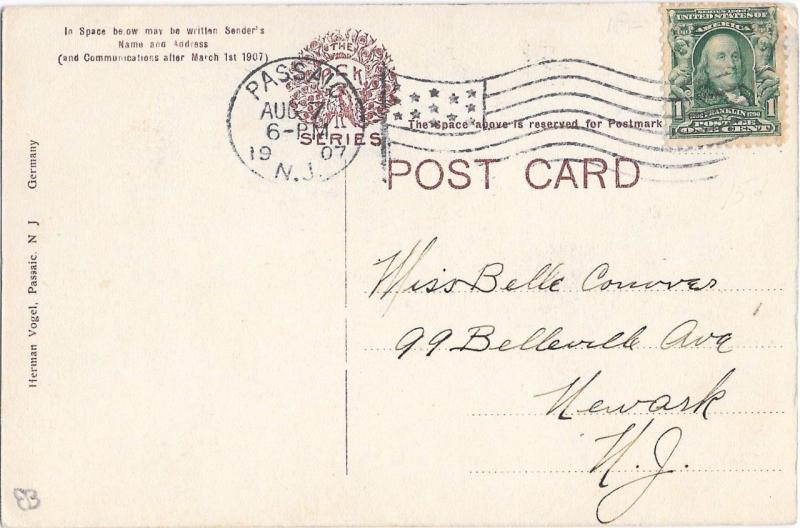 In Space below may be written Sender's
Name and Address
(and Communications after March 1st 1907)
THE
SERIES
PASSAIC
AUG 7
6-PM
1907
N.J.
SERIES 1902
UNITED STATES OF
AMERICA
1 1
FRANKLIN
POSTAGE
ONE CENT
The space above is reserved for Postmark
POST CARD
Miss Belle Conover
99 Belleville Ave
Newark
N.J.
Herman Vogel, Passaic. N J Germany
EB